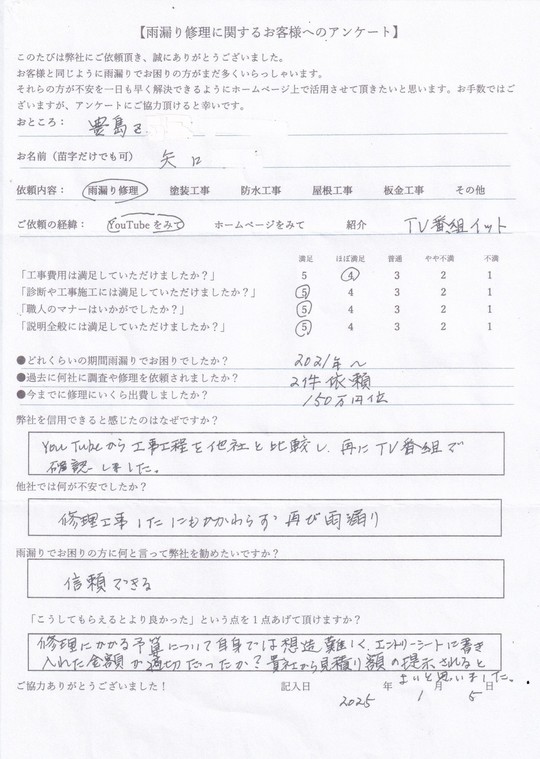 【雨漏り修理に関するお客様へのアンケート】
このたびは弊社にご依頼頂き、誠にありがとうございました。
お客様と同じように雨漏りでお困りの方がまだ多くいらっしゃいます。
それらの方が不安を一日も早く解決できるようにホームページ上で活用させて頂きたいと思います。お手数ではご
ざいますが、アンケートにご協力頂けると幸いです。
おところ： 豊島区
お名前（苗字だけでも可） 矢口
依頼内容： 雨漏り修理 塗装工事 防水工事 屋根工事 板金工事 その他
ご依頼の経緯： YouTubeをみて ホームページをみて 紹介 TV番組イット
満足 ほぼ満足 普通 やや不満 不満
「工事費用は満足していただけましたか？」 5 4 3 2 1
「診断や工事施工には満足していただけましたか？」 5 4 3 2 1
「職人のマナーはいかがでしたか？」 5 4 3 2 1
「説明全般には満足していただけましたか？」 5 4 3 2 1
●どれくらいの期間雨漏りでお困りでしたか？ 2021年～
●過去に何社に調査や修理を依頼されましたか？ 2件依頼
●今までに修理にいくら出費しましたか？ 150万円位
弊社を信用できると感じたのはなぜですか？
You Tubeから工事工程を他社と比較し、再にTV番組で
確認しました。
他社では何が不安でしたか？
修理工事したにもかかわらず再び雨漏り
雨漏りでお困りの方に何と言って弊社を勧めたいですか？
信頼できる
「こうしてもらえるとより良かった」という点を１点あげて頂けますか？
修理にかかる予算について自身では想造難しく、エントリーシートに書き
入れた金額が適切だったか？貴社から見積り額の提示されると
よいと思いました。
ご協力ありがとうございました！ 記入日 年 月 日
2025 1 5